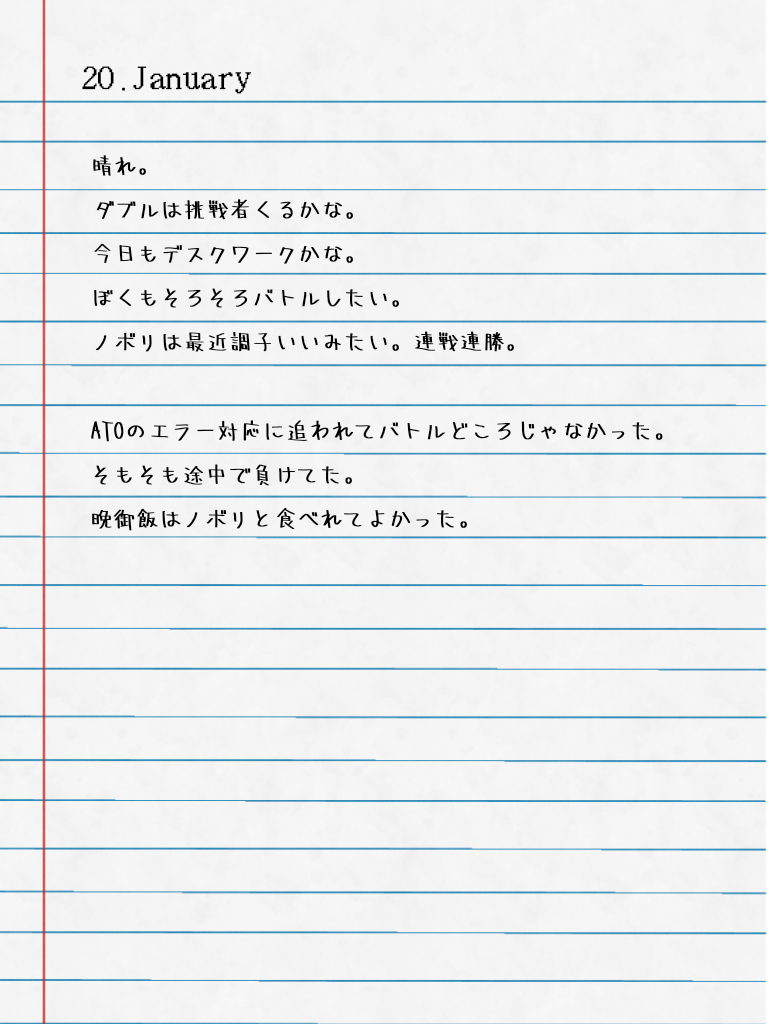 20.January
晴れ。
ダブルは挑戦者くるかな。
今日もデスクワークかな。
ぼくもそろそろバトルしたい。
ノボリは最近調子いいみたい。連戦連勝。
ATOのエラー対応に追われてバトルどころじゃなかった。
そもそも途中で負けてた。
晩御飯はノボリと食べれてよかった。